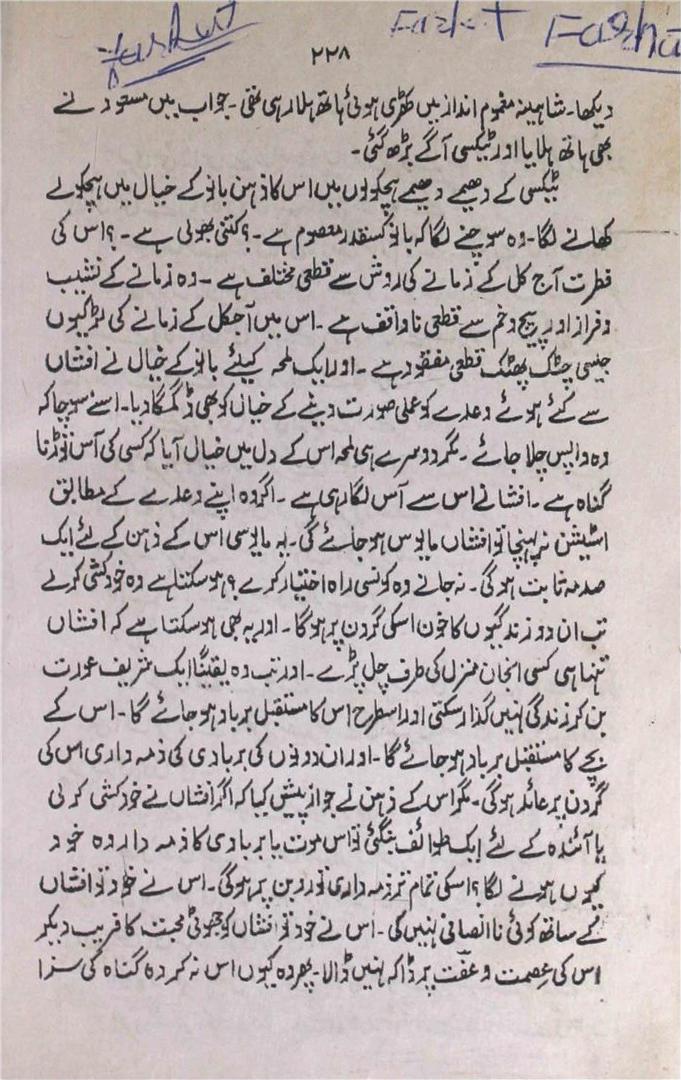 Farhat
Farhat
Farha
۲۲۸
دیکھا۔ شاہینہ مغموم انداز میں کھڑی ہوئی ہاتھ ہلا رہی تھی۔ جواب میں مسعود نے
بھی ہاتھ ہلایا اور ٹیکسی آگے بڑھ گئی۔
ٹیکسی کے دھیمے دھیمے ہچکولوں میں اس کا ذہن بانو کے خیال میں ہچکولے
کھانے لگا۔ وہ سوچنے لگا کہ بانو کسقدر معصوم ہے۔؟ کتنی بھولی ہے۔؟ اس کی
فطرت آج کل کے زمانے کی روش سے قطعی مختلف ہے۔ وہ زمانے کے نشیب
و فراز اور پیچ و خم سے قطعی ناواقف ہے۔ اس میں آجکل کے زمانے کی لڑکیوں
جیسی چٹک پھٹک قطعی مفقود ہے۔ اور ایک لمحہ کیلئے بانو کے خیال نے افشاں
سے کئے ہوئے وعدے کو عملی صورت دینے کے خیال کو بھی ڈگمگا دیا۔ اسنے سوچا کہ
وہ واپس چلا جائے۔ مگر دوسرے ہی لمحہ اس کے دل میں خیال آیا کہ کسی کی آس توڑنا
گناہ ہے۔ افشاں نے اس سے آس لگا رہی ہے۔ اگر وہ اپنے وعدے کے مطابق
اسٹیشن نہ پہنچا تو افشاں مایوس ہو جائے گی۔ یہ مایوسی اس کے ذہن کے لئے ایک
صدمہ ثابت ہو گی۔ نہ جانے وہ کونسی راہ اختیار کرے؟ ہو سکتا ہے وہ خودکشی کرلے
تب ان دو زندگیوں کا خون اسکی گردن پر ہو گا۔ اور یہ بھی ہو سکتا ہے کہ افشاں
تنہا ہی کسی انجان منزل کی طرف چل پڑے۔ اور تب وہ یقیناً ایک شریف عورت
بن کر زندگی نہیں گذار سکتی اور اسطرح اس کا مستقبل برباد ہو جائے گا۔ اس کے
بچے کا مستقبل برباد ہو جائے گا۔ اور ان دونوں کی بربادی کی ذمہ داری اس کی
گردن پر عائد ہو گی۔ مگر اس کے ذہن نے جواز پیش کیا کہ اگر افشاں نے خودکشی کر لی
یا آئندہ کے لئے ایک طوائف بنگئی تو اس موت یا بربادی کا ذمہ دار وہ خود
کیوں ہونے لگا؟ اسکی تمام تر ذمہ داری تو روبن پر ہو گی۔ اس نے خود تو افشاں
کے ساتھ کوئی ناانصافی نہیں کی۔ اس نے خود تو افشاں کو جھوٹی محبت کا فریب دیکر
اس کی عصمت و عفت پر ڈاکہ نہیں ڈالا۔ پھر وہ کیوں اس نہ کردہ گناہ کی سزا